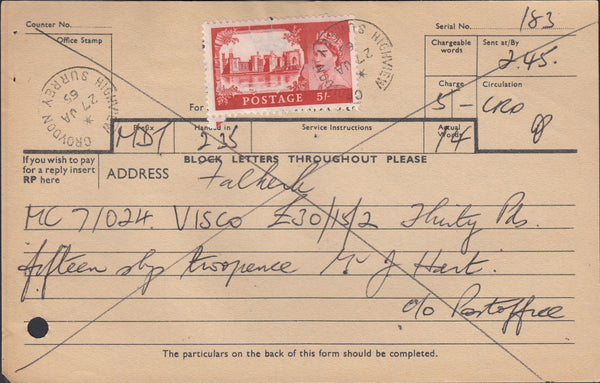 Counter No.
Serial No. 183
Office Stamp
Chargeable words
Sent at/By 2.45.
Charge 5/-
Circulation CRO
HIGHVIEW CROYDON SURREY
27 JA 65
POSTAGE 5/-
For
Prefix MDT
Handed in 2.35
Service Instructions
Actual Words 14
98
If you wish to pay for a reply insert RP here
BLOCK LETTERS THROUGHOUT PLEASE
ADDRESS
MC 7/024. VISCO £30/15/2 Thirty Pds.
fifteen shgs twopence Mr J Hart.
c/o Postoffice
The particulars on the back of this form should be completed.